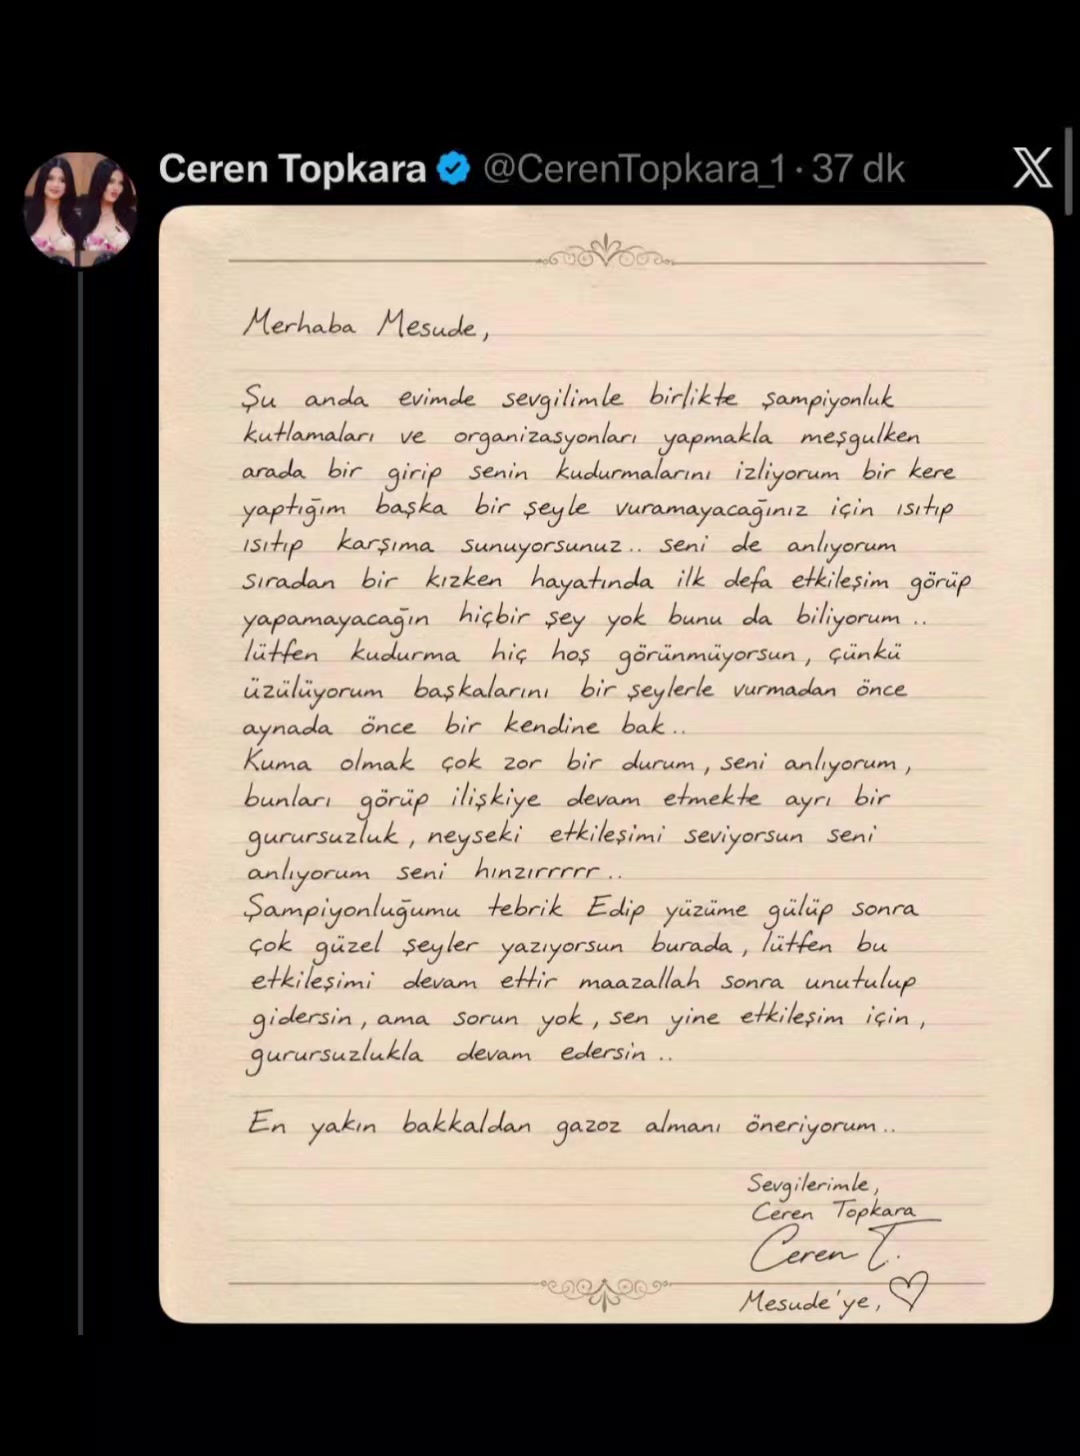 Ceren Topkara @CerenTopkara_1 · 37 dk
Merhaba Mesude,
Şu anda evimde sevgilimle birlikte şampiyonluk
kutlamaları ve organizasyonları yapmakla meşgulken
arada bir girip senin kudurmalarını izliyorum bir kere
yaptığım başka bir şeyle vuramayacağınız için ısıtıp
ısıtıp karşıma sunuyorsunuz.. seni de anlıyorum
sıradan bir kızken hayatında ilk defa etkileşim görüp
yapamayacağın hiçbir şey yok bunu da biliyorum ..
lütfen kudurma hiç hoş görünmüyorsun, çünkü
üzülüyorum başkalarını bir şeylerle vurmadan önce
aynada önce bir kendine bak..
Kuma olmak çok zor bir durum, seni anlıyorum,
bunları görüp ilişkiye devam etmekte ayrı bir
gurursuzluk, neyseki etkileşimi seviyorsun seni
anlıyorum seni hınzırrrrr..
Şampiyonluğumu tebrik Edip yüzüme gülüp sonra
çok güzel şeyler yazıyorsun burada, lütfen bu
etkileşimi devam ettir maazallah sonra unutulup
gidersin, ama sorun yok, sen yine etkileşim için,
gurursuzlukla devam edersin ..
En yakın bakkaldan gazoz almanı öneriyorum..
Sevgilerimle,
Ceren Topkara
Ceren T.
Mesude'ye,